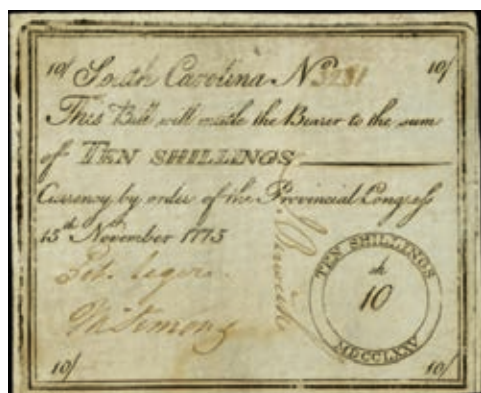 10/ South Carolina No 3231 10/
This Bill will entitle the Bearer to the sum
of TEN SHILLINGS
Currency by order of the Provincial Congress
15th November 1775
TEN SHILLINGS
10
MDCCLXXV
Pet. Leger
10/ 10/